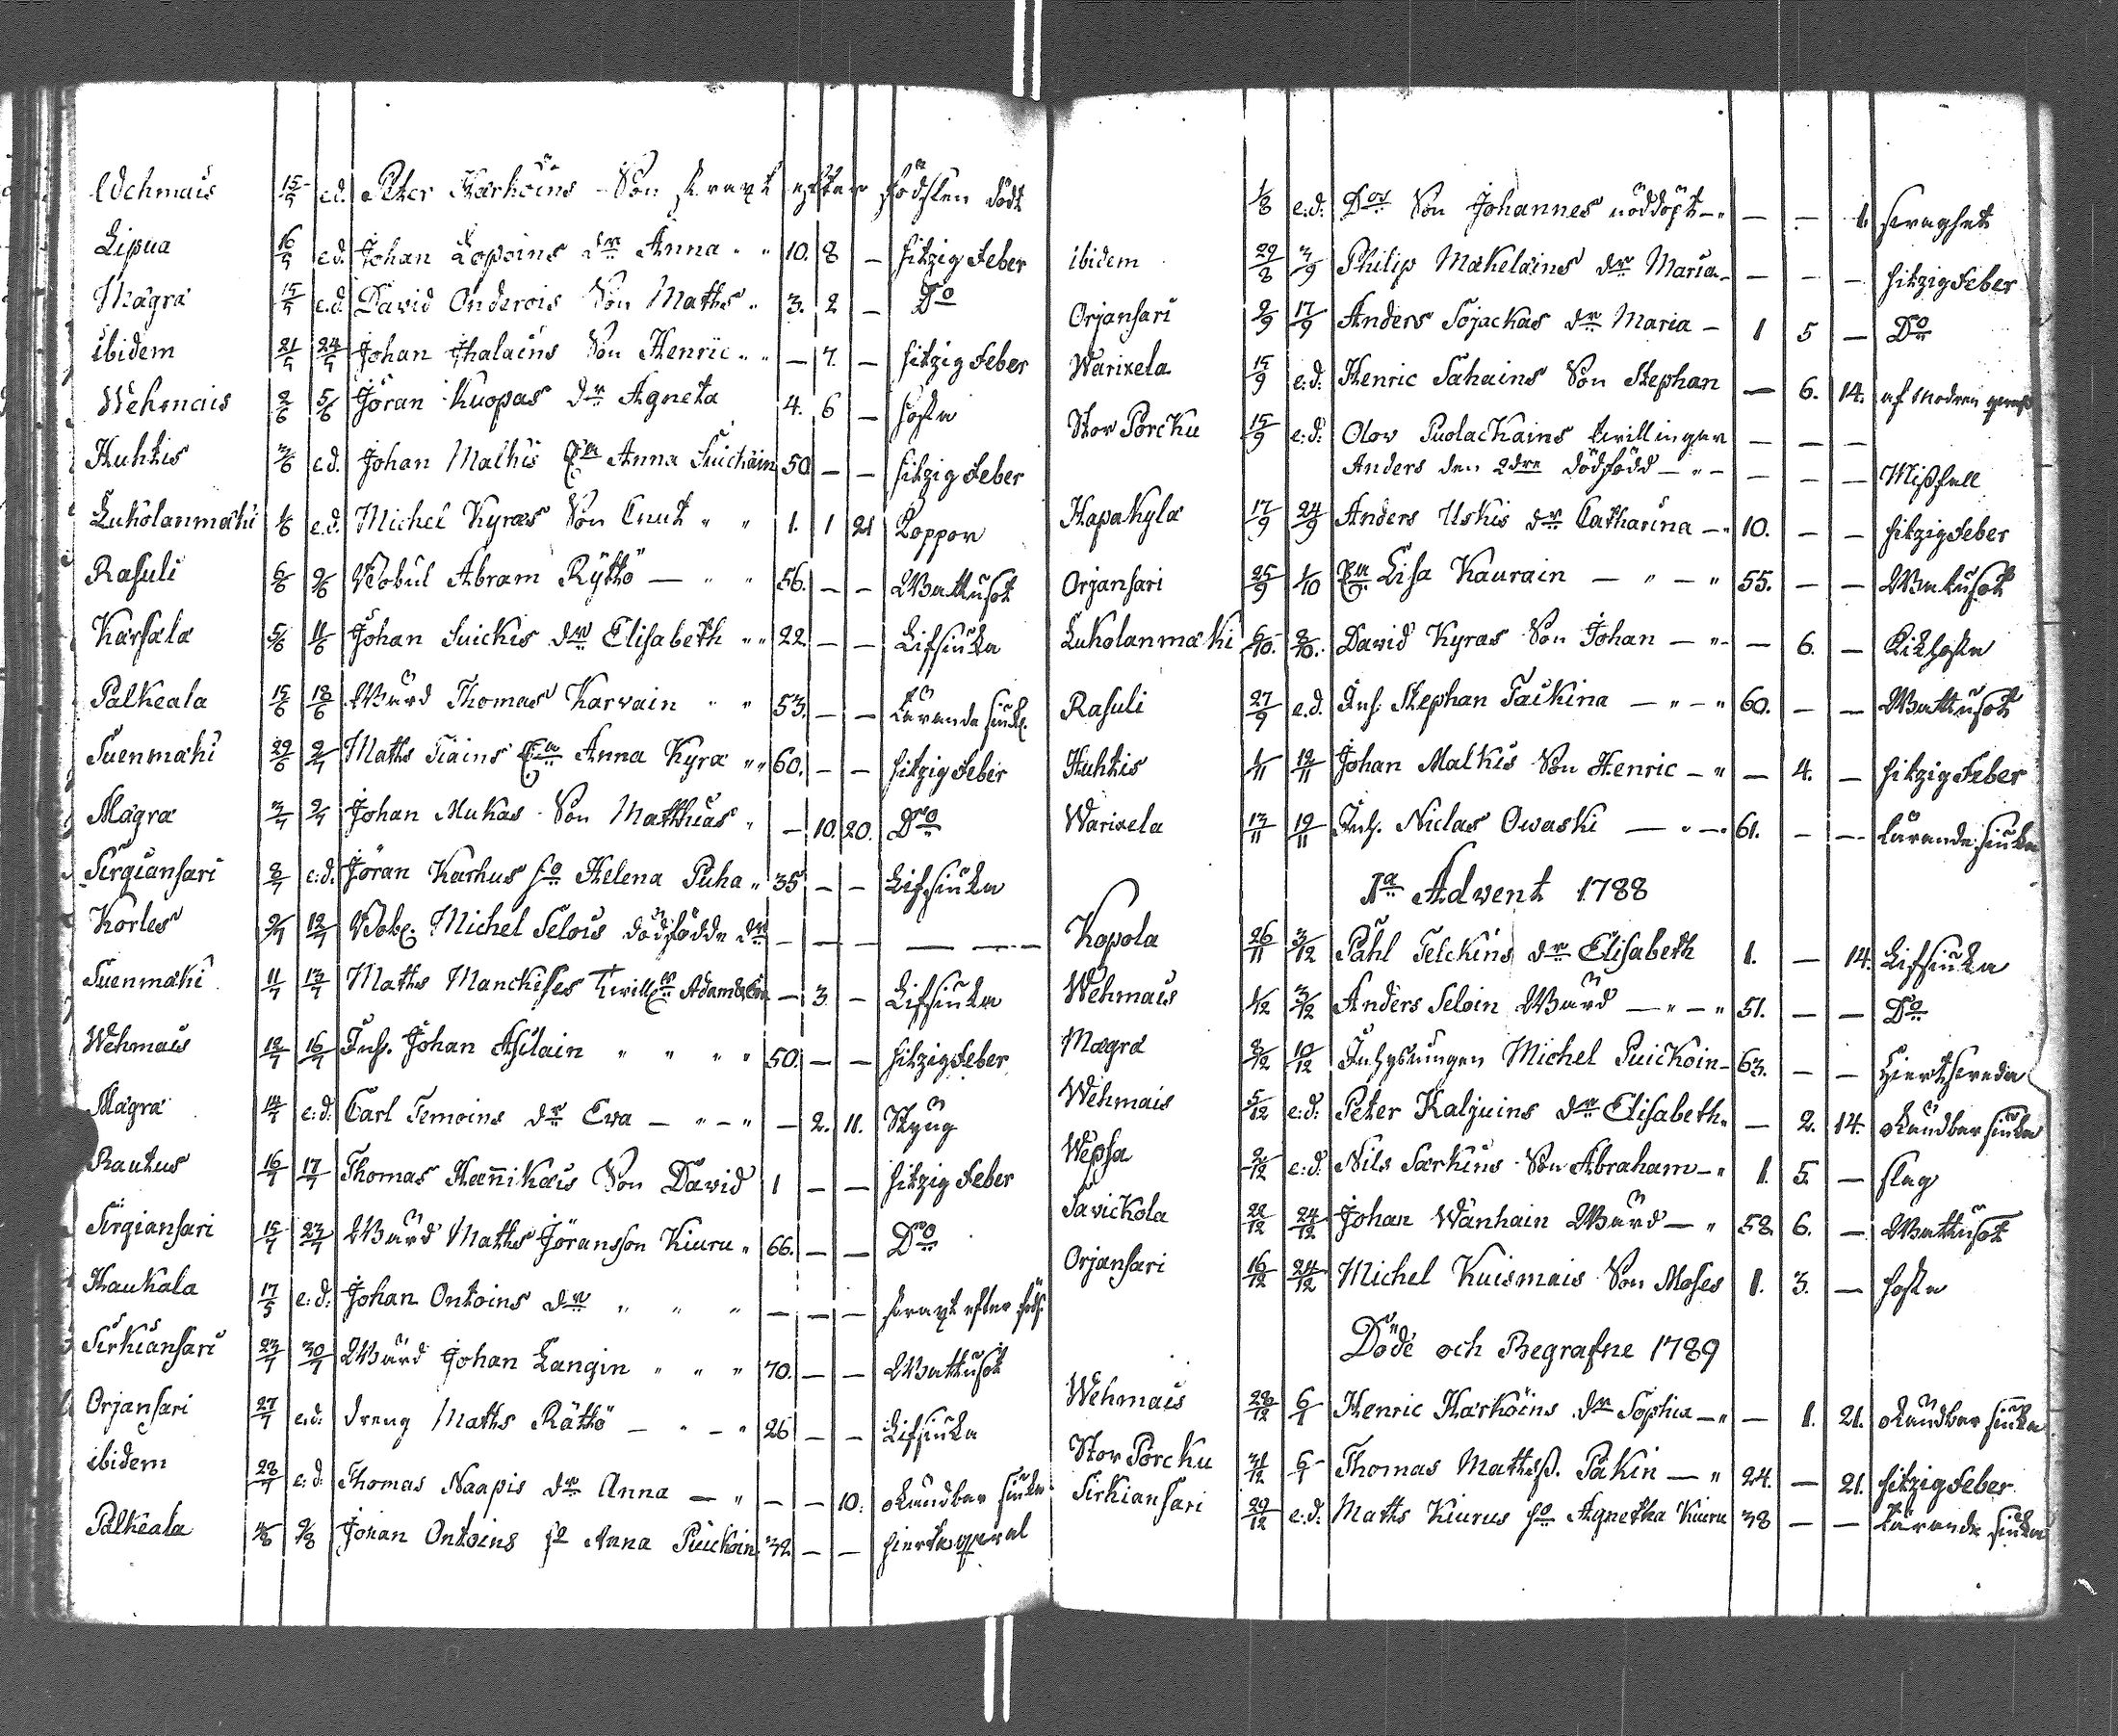 Wehmais 15/5 e.d. Peter Harkoins Son straxt efter födslen död
Lipua 16/5 e.d. Johan Lopoins dr Anna " " 10. 8 — hitzig feber
Magra 15/5 e.d. David Onderois Son Maths " 3. 2 — Do
ibidem 21/5 24/5 Johan Ihalains Son Henric " " — 7. — hitzig feber
Wehmais 2/6 5/6 Jöran Kuopas dr Agneta 4. 6 — hosta
Huhtis 3/6 e.d. Johan Malkis Ea Anna Suickain 50 — — hitzig feber
Lukolanmäki 1/6 e.d. Michel Kyras Son Cnut " " 1. 1 21 Koppor
Rasuli 6/6 9/6 Kobul Abram Rÿttö — " " 56. — — Wattusot
Karsala 5/6 11/6 Johan Suickis dr Elisabeth " " 22 — — Lifsiuka
Palkeala 15/6 18/6 Wärd Thomas Karvain " " 53. — — Tärande siuk.
Suenmaki 29/6 2/7 Maths Tiains Ea Anna Kyra " " 60. — — hitzig feber
Magra 3/7 9/7 Johan Mukas Son Matthias " — 10. 20. Do
Sirgiansari 8/7 e:d. Jöran Karhus ho Helena Puha " 35 — — Lifsiuka
Korles 9/7 12/7 Kob. Michel Selois dödfödde dr — — — —
Suenmaki 11/7 13/7 Maths Manckises twill. Adam — 3 — Lifsiuka
Wehmais 12/7 16/7 Inh. Johan Asilain " " " " 50. — — hitzig feber
Magra 14/7 e:d. Carl Temoins dr Eva — " — " — 2. 11. Styng
Rautus 16/7 17/7 Thomas Hañikais Son David 1 — — hitzig feber
Sirgiansari 15/7 23/7 Wärd Maths Jöransson Kiuru " 66. — — Do
Haukala 17/5 e:d. Johan Ontoins dr " " " — — — straxt efter föds.
Sirkiansari 23/7 30/7 Wärd Johan Langin " " " 70. — — Wattusot
Orjansari 27/7 e.d. dreng Maths Rättö — " — " 26 — — Lifsiuka
ibidem 28/7 e:d. Thomas Naapis dr Anna — " — — 10. okundbar siuka
Palkeala 4/8 9/8 Johan Ontoins ho Anna Puickoin 32 — —
1/8 e:d: Dos Son Johannes nöddöpt — " — — 1. swaghet
ibidem 29/8 3/9 Philip Makelains dr Maria — — — — hitzig feber
Orjansari 9/9 17/9 Anders Sojackas dr Maria — 1 5 — Do
Warixela 15/9 e:d: Henric Sahains Son Stephan — 6. 14. af modren
Stor Porcku 15/9 e:d: Olov Puolackains twillingar — — —
Anders den 2dre dödfödd — " — — — — Missfall
Hapakyla 17/9 24/9 Anders Uskis dr Catharina — " 10. — — hitzig feber
Orjansari 25/9 1/10 Ea Lisa Kaurain — " — " 55. — — Wattusot
Lukolanmäki 6/10 9/10 David Kyras Son Johan — " — — 6. — Kikhosta
Rasuli 27/9 e.d. Inh. Stephan Tackina — " — " 60. — — Wattusot
Huhtis 1/11 12/11 Johan Malkis Son Henric — " — 4. — hitzig feber
Warixela 13/11 19/11 Inh. Niclas Owaski — " — 61. — — tärande siuka
Ia Advent 1788
Kopola 26/11 3/12 Påhl Telckins dr Elisabeth 1. — 14. Lifsiuka
Wehmais 1/12 3/12 Anders Seloin Wärd — " — " 51. — — Do
Magra 8/12 10/12 Inhysungen Michel Puickoin — 63. — —
Wehmais 5/12 e:d: Peter Kaljuins dr Elisabeth " — 2. 14. okundbar siuka
Wepsa 9/12 e:d: Nils Sarkins Son Abraham — " 1. 5. — slag
Savickola 22/12 24/12 Johan Wänhain Wärd — " 58. 6. — Wattusot
Orjansari 16/12 24/12 Michel Kuismais Son Moses 1. 3. — hosta
Döde och Begrafne 1789
Wehmais 28/12 6/1 Henric Harkoins dr Sophia — " — 1. 21. okundbar siuka
Stor Porcku 31/12 6/1 Thomas Mathss. Päkin — " 24. — 21. hitzig feber
Sirkiansari 29/12 e:d. Maths Kiurus ho Agnetha Kiuru 38 — — tärande siuka